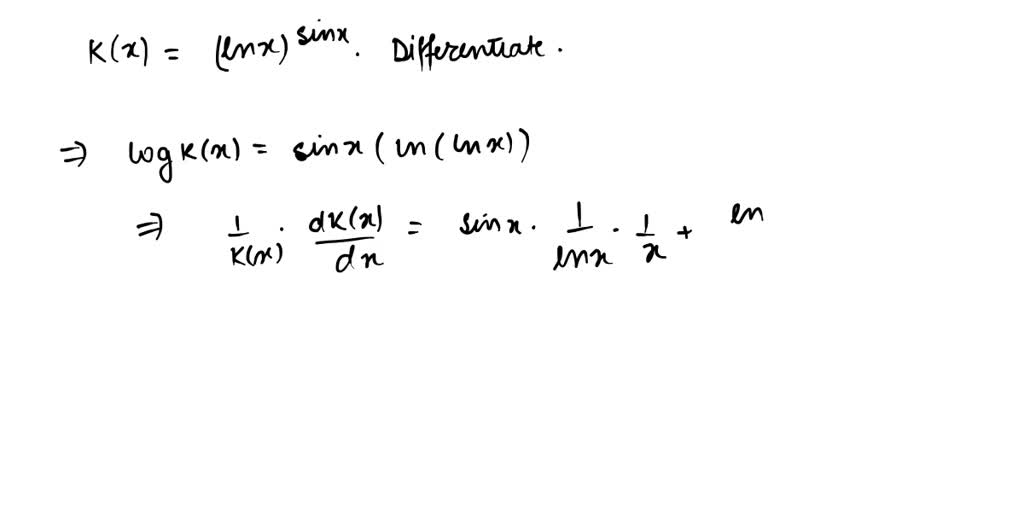 K(x) = (lnx)^sinx. Differentiate.
⇒ log K(x) = sinx (ln(lnx))
⇒ 1/K(x) · dK(x)/dx = sinx · 1/lnx · 1/x + ln